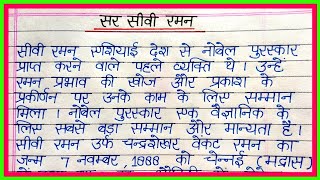 सर सीवी रमन
सीवी रमन एशियाई देश से नोबेल पुरस्कार
प्राप्त करने वाले पहले व्यक्ति थे। उन्हें
रमन प्रभाव की खोज और प्रकाश के
प्रकीर्णन पर उनके काम के लिए सम्मान
मिला। नोबेल पुरस्कार एक वैज्ञानिक के
लिए सबसे बड़ा सम्मान और मान्यता है।
सीवी रमन उर्फ चन्द्रशेखर वेंकट रमन का
जन्म 7 नवम्बर, 1888 को चेन्नई (मद्रास)